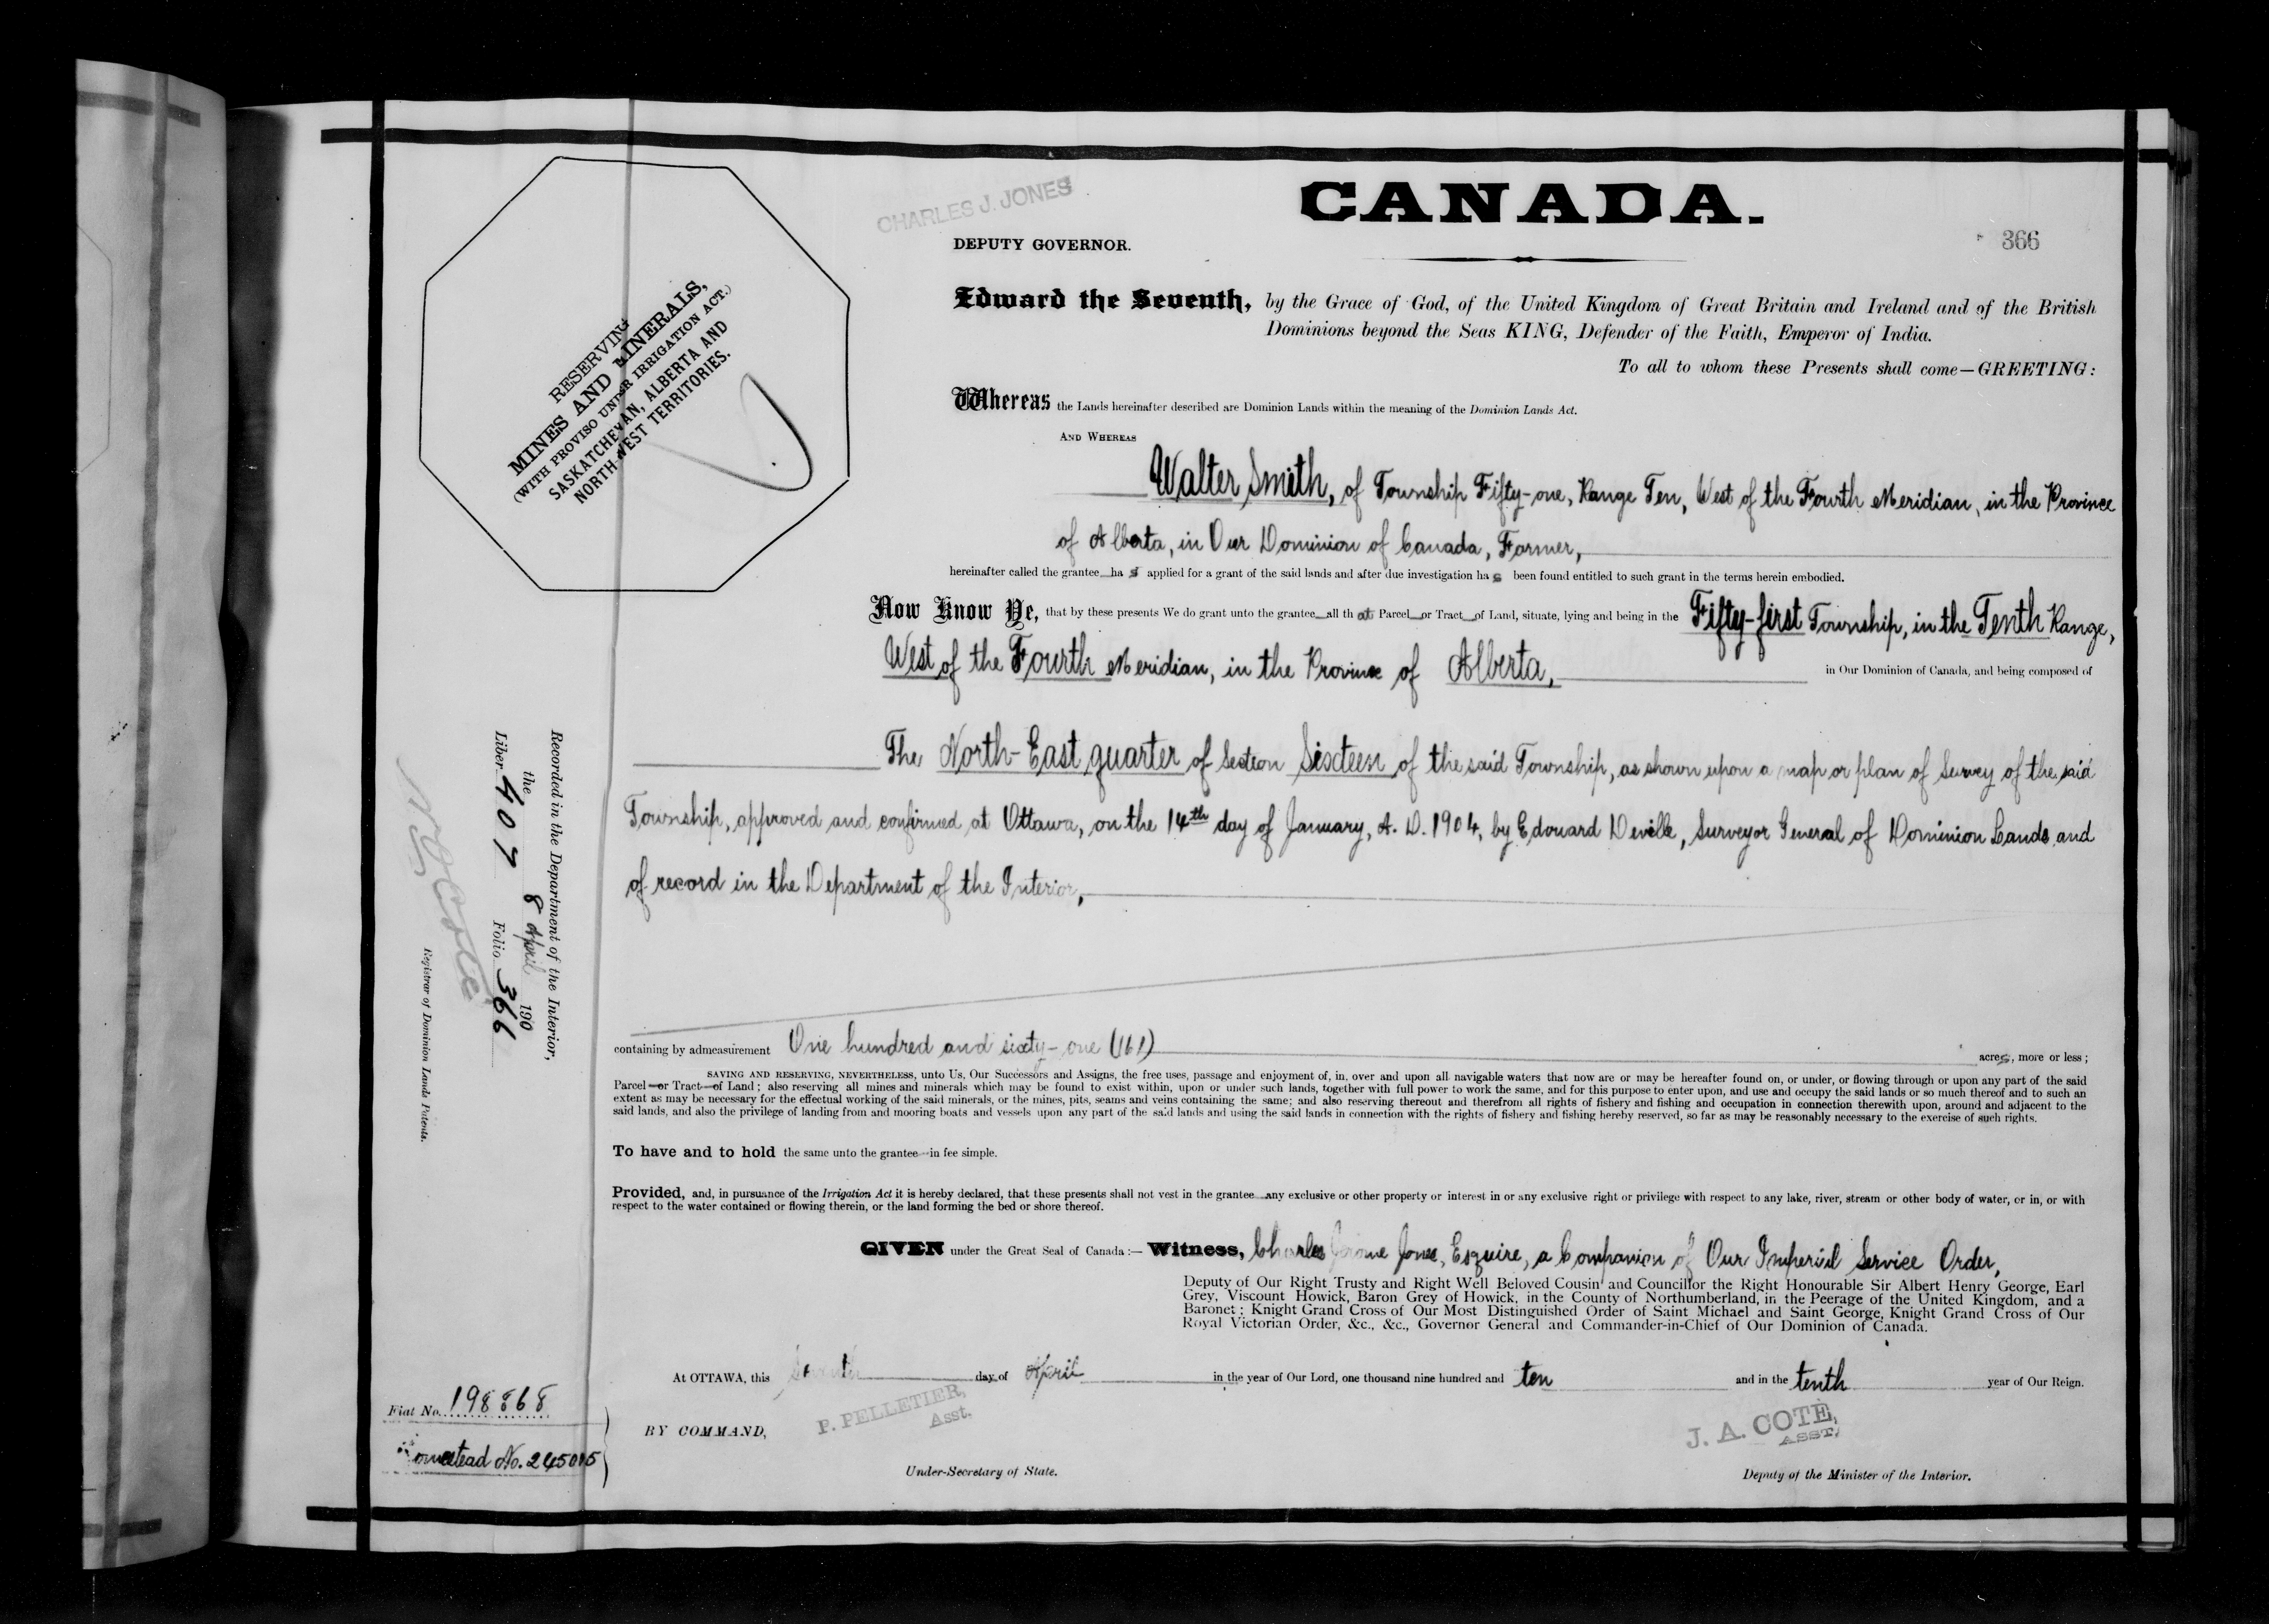 CHARLES J. JONES
CANADA.
DEPUTY GOVERNOR.
366
RESERVING
MINES AND MINERALS,
(WITH PROVISO UNDER IRRIGATION ACT.)
SASKATCHEWAN, ALBERTA AND
NORTH WEST TERRITORIES.
Edward the Seventh, by the Grace of God, of the United Kingdom of Great Britain and Ireland and of the British
Dominions beyond the Seas KING, Defender of the Faith, Emperor of India.
To all to whom these Presents shall come—GREETING:
Whereas the Lands hereinafter described are Dominion Lands within the meaning of the Dominion Lands Act.
AND WHEREAS
Walter Smith, of Township Fifty-one, Range Ten, West of the Fourth Meridian, in the Province
of Alberta, in Our Dominion of Canada, Farmer,
hereinafter called the grantee has applied for a grant of the said lands and after due investigation has been found entitled to such grant in the terms herein embodied.
Now Know Ye, that by these presents We do grant unto the grantee all that Parcel or Tract of Land, situate, lying and being in the Fifty-first Township, in the Tenth Range,
West of the Fourth Meridian, in the Province of Alberta, in Our Dominion of Canada, and being composed of
The North-East quarter of Section Sixteen of the said Township, as shown upon a map or plan of Survey of the said
Township, approved and confirmed at Ottawa, on the 14th day of January, A. D. 1904, by Edouard Deville, Surveyor General of Dominion Lands and
of record in the Department of the Interior,
containing by admeasurement One hundred and sixty-one (161) acres, more or less;
SAVING AND RESERVING, NEVERTHELESS, unto Us, Our Successors and Assigns, the free uses, passage and enjoyment of, in, over and upon all navigable waters that now are or may be hereafter found on, or under, or flowing through or upon any part of the said
Parcel or Tract of Land; also reserving all mines and minerals which may be found to exist within, upon or under such lands, together with full power to work the same, and for this purpose to enter upon, and use and occupy the said lands or so much thereof and to such an
extent as may be necessary for the effectual working of the said minerals, or the mines, pits, seams and veins containing the same; and also reserving thereout and therefrom all rights of fishery and fishing and occupation in connection therewith upon, around and adjacent to the
said lands, and also the privilege of landing from and mooring boats and vessels upon any part of the said lands and using the said lands in connection with the rights of fishery and fishing hereby reserved, so far as may be reasonably necessary to the exercise of such rights.
To have and to hold the same unto the grantee in fee simple.
Provided, and, in pursuance of the Irrigation Act it is hereby declared, that these presents shall not vest in the grantee any exclusive or other property or interest in or any exclusive right or privilege with respect to any lake, river, stream or other body of water, or in, or with
respect to the water contained or flowing therein, or the land forming the bed or shore thereof.
GIVEN under the Great Seal of Canada:— Witness, Charles Jerome Jones, Esquire, a Companion of Our Imperial Service Order,
Deputy of Our Right Trusty and Right Well Beloved Cousin and Councillor the Right Honourable Sir Albert Henry George, Earl
Grey, Viscount Howick, Baron Grey of Howick, in the County of Northumberland, in the Peerage of the United Kingdom, and a
Baronet; Knight Grand Cross of Our Most Distinguished Order of Saint Michael and Saint George, Knight Grand Cross of Our
Royal Victorian Order, &c., &c., Governor General and Commander-in-Chief of Our Dominion of Canada.
At OTTAWA, this day of April in the year of Our Lord, one thousand nine hundred and ten and in the tenth year of Our Reign.
BY COMMAND,
P. PELLETIER,
Asst.
Under-Secretary of State.
J. A. COTE,
ASST.
Deputy of the Minister of the Interior.
Recorded in the Department of the Interior,
the 8 April 190
Liber 407 Folio 366
Registrar of Dominion Lands Patents.
Fiat No. 198868
omestead No. 245015